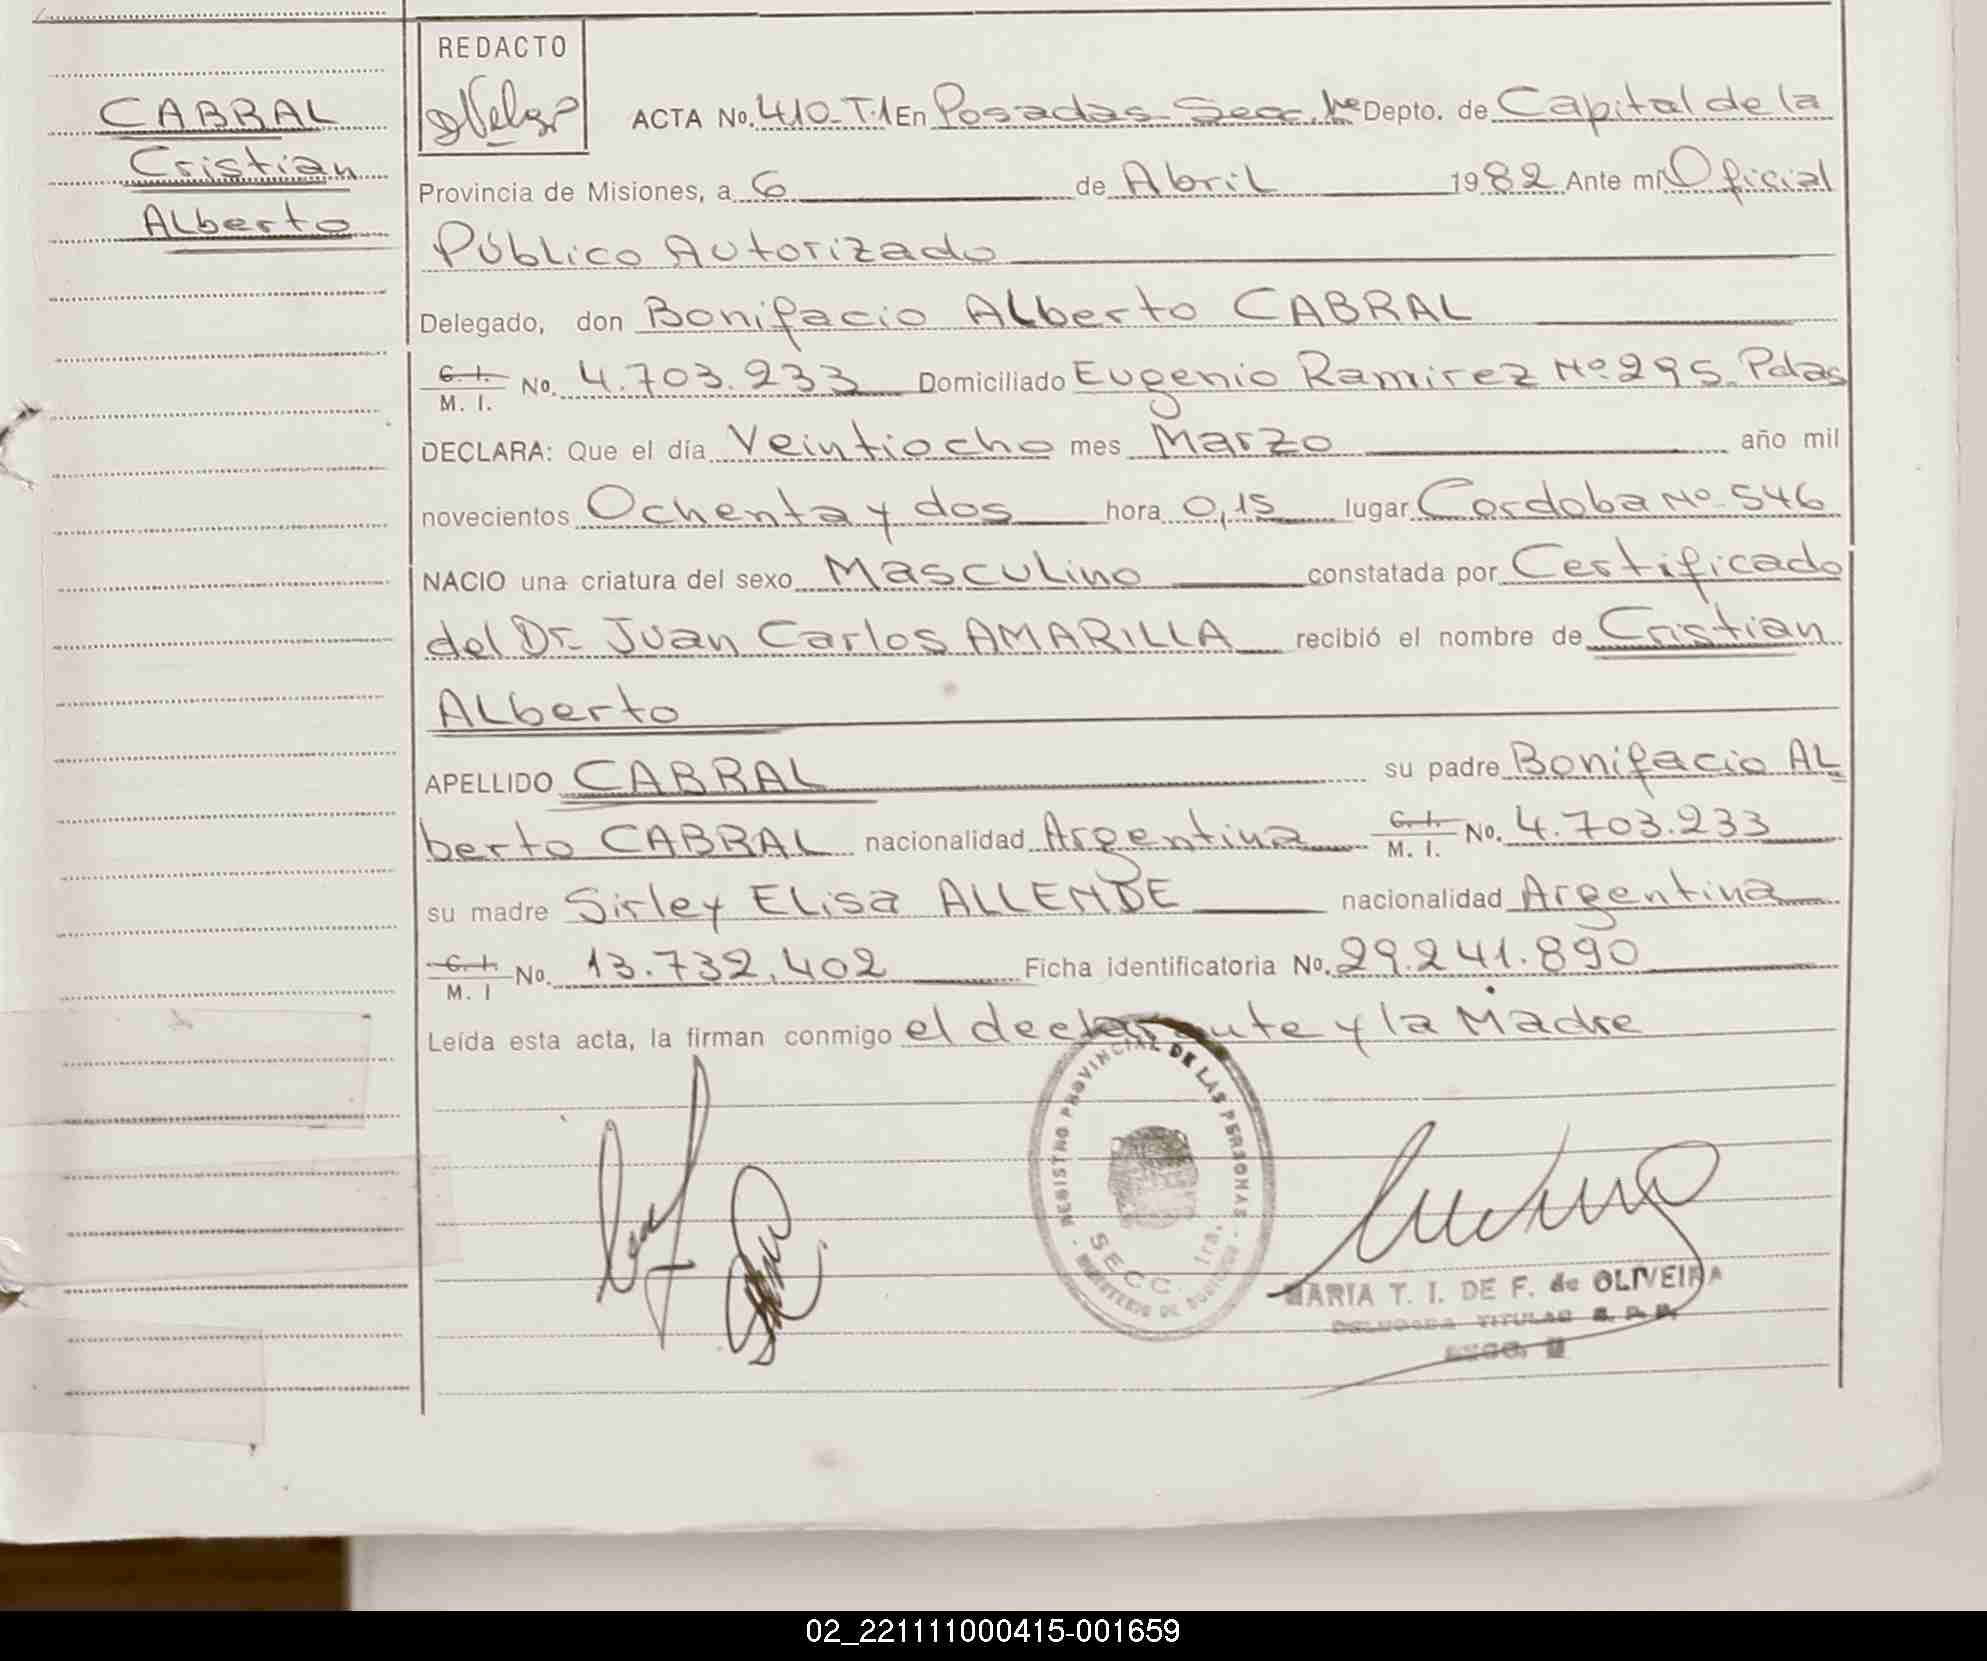 CABRAL
Cristian
Alberto
REDACTO
ACTA No. 410-T.1 En Posadas- Secc. 1re Depto. de Capital de la
Provincia de Misiones, a 6 de Abril 1982 Ante mi Oficial
Público Autorizado
Delegado, don Bonifacio Alberto CABRAL
C. I.
M. I. No. 4.703.233 Domiciliado Eugenio Ramirez Nº 295. Pdas
DECLARA: Que el día Veintiocho mes Marzo año mil
novecientos Ochenta y dos hora 0,15 lugar Cordoba Nº 546
NACIO una criatura del sexo Masculino constatada por Certificado
del Dr. Juan Carlos AMARILLA recibió el nombre de Cristian
Alberto
APELLIDO CABRAL su padre Bonifacio Al
berto CABRAL nacionalidad Argentina C. I. M. I. No. 4.703.233
su madre Sirley Elisa ALLENDE nacionalidad Argentina
C. I. M. I No. 13.732.402 Ficha identificatoria No. 29.241.890
Leída esta acta, la firman conmigo el declarante y la Madre
REGISTRO PROVINCIAL DE LAS PERSONAS
SECC. 1ra.
MARIA T. I. DE F. de OLIVEIRA
DELEGADA TITULAR
02_221111000415-001659